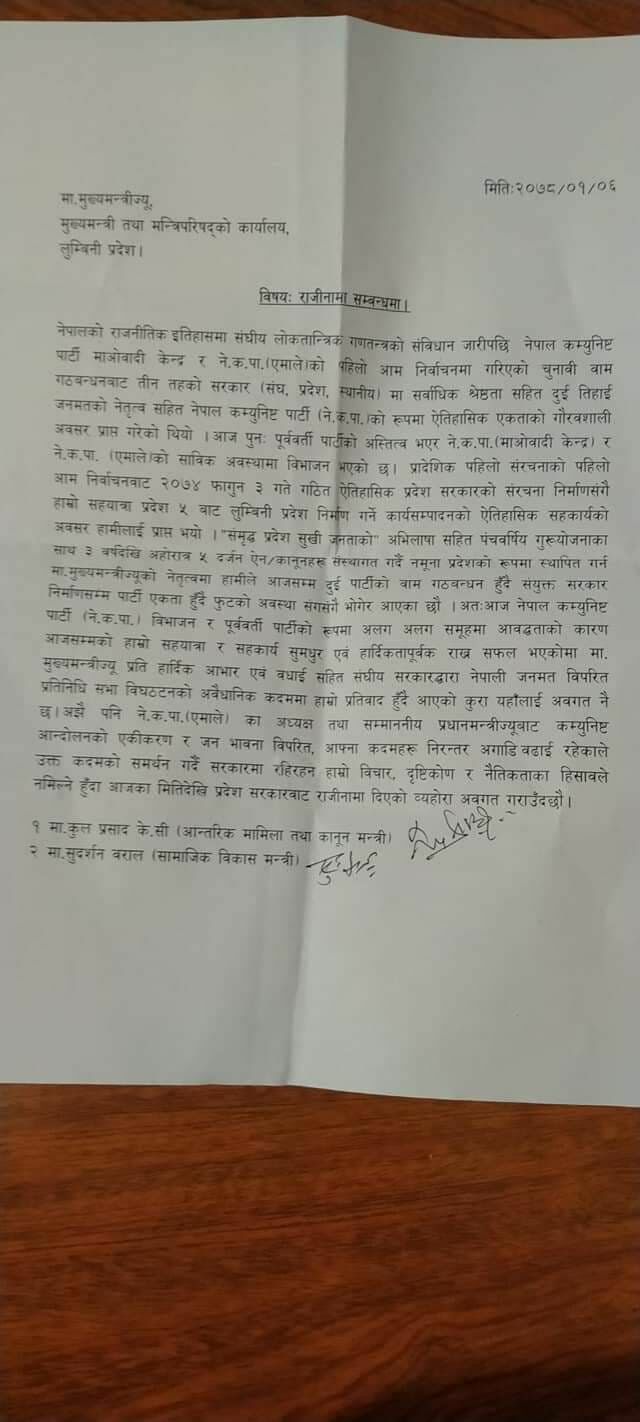 मितिः२०७८/०१/०६
मा.मुख्यमन्त्रीज्यू,
मुख्यमन्त्री तथा मन्त्रिपरिषद्को कार्यालय,
लुम्बिनी प्रदेश।
विषयः राजीनामा सम्बन्धमा।
नेपालको राजनीतिक इतिहासमा संघीय लोकतान्त्रिक गणतन्त्रको संविधान जारीपछि नेपाल कम्युनिष्ट
पार्टी माओवादी केन्द्र र ने.क.पा.(एमाले)को पहिलो आम निर्वाचनमा गरिएको चुनावी वाम
गठबन्धनवाट तीन तहको सरकार (संघ, प्रदेश, स्थानीय) मा सर्वाधिक श्रेष्ठता सहित दुई तिहाई
जनमतको नेतृत्व सहित नेपाल कम्युनिष्ट पार्टी (ने.क.पा.)को रूपमा ऐतिहासिक एकताको गौरवशाली
अवसर प्राप्त गरेको थियो ।आज पुनः पूर्ववर्ती पार्टीको अस्तित्व भएर ने.क.पा.(माओवादी केन्द्र) र
ने.क.पा. (एमाले)को साविक अवस्थामा विभाजन भएको छ। प्रादेशिक पहिलो संरचनाको पहिलो
आम निर्वाचनवाट २०७४ फागुन ३ गते गठित ऐतिहासिक प्रदेश सरकारको संरचना निर्माणसंगै
हाम्रो सहयात्रा प्रदेश ५ वाट लुम्बिनी प्रदेश निर्माण गर्ने कार्यसम्पादनको ऐतिहासिक सहकार्यको
अवसर हामीलाई प्राप्त भयो ।"समृद्ध प्रदेश सुखी जनताको" अभिलाषा सहित पंचवर्षिय गुरूयोजनाका
साथ ३ वर्षदेखि अहोरात्र ५ दर्जन ऐन/कानूनहरू संस्थागत गर्दै नमूना प्रदेशको रूपमा स्थापित गर्न
मा.मुख्यमन्त्रीज्यूको नेतृत्वमा हामीले आजसम्म दुई पार्टीको वाम गठबन्धन हुँदै संयुक्त सरकार
निर्माणसम्म पार्टी एकता हुँदै फुटको अवस्था संगसंगै भोगेर आएका छौ ।अतःआज नेपाल कम्युनिष्ट
पार्टी (ने.क.पा.) विभाजन र पूर्ववर्ती पार्टीको रूपमा अलग अलग समूहमा आवद्धताको कारण
आजसम्मको हाम्रो सहयात्रा र सहकार्य सुमधुर एवं हार्दिकतापूर्वक राख्न सफल भएकोमा मा.
मुख्यमन्त्रीज्यू प्रति हार्दिक आभार एवं वधाई सहित संघीय सरकारद्धारा नेपाली जनमत विपरित
प्रतिनिधि सभा विघठटनको अवैधानिक कदममा हाम्रो प्रतिवाद हुँदै आएको कुरा यहाँलाई अवगत नै
छ।अझै पनि ने.क.पा.(एमाले) का अध्यक्ष तथा सम्माननीय प्रधानमन्त्रीज्यूबाट कम्युनिष्ट
आन्दोलनको एकीकरण र जन भावना विपरित, आफ्ना कदमहरू निरन्तर अगाडि वढाई रहेकाले
उक्त कदमको समर्थन गर्दै सरकारमा रहिरहन हाम्रो विचार, दृष्टिकोण र नैतिकताका हिसावले
नमिल्ने हुँदा आजका मितिदेखि प्रदेश सरकारवाट राजीनामा दिएको व्यहोरा अवगत गराउँदछौ।
१ मा.कुल प्रसाद के.सी (आन्तरिक मामिला तथा कानून मन्त्री)
२ मा.सुदर्शन वराल (सामाजिक विकास मन्त्री)